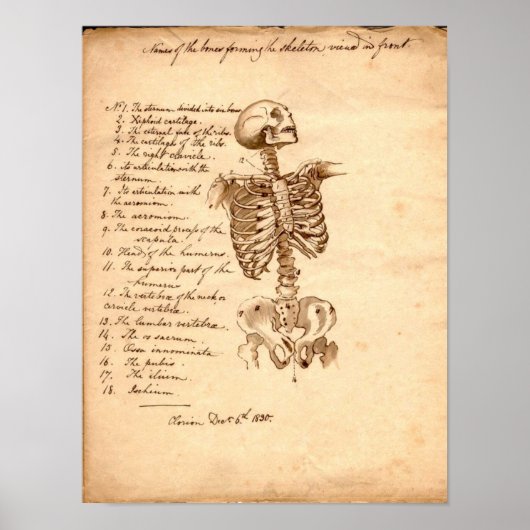 Names of the bones forming the skeleton, viewed in front.
No 1. The sternum divided into six bones
2. Xiphoid cartilage.
3. The external face of the ribs.
4. The cartilages of the ribs.
5. The right clavicle.
6. Its articulation with the
sternum.
7. Its articulation with
the acromium.
8. The acromium.
9. The coracoid process of the
scapula.
10. Head of the humerus.
11. The superior part of the
humerus
12. The vertebræ of the neck or
cervicle vertebræ.
13. The Lumbar vertebræ.
14. The os sacrum.
15. Ossa innominata
16. The pubis.
17. The ilium.
18. Ischium.
12
Decr 6th 1830.